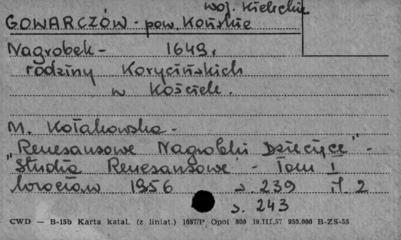 woj. Kieleckie
GOWARCZÓW - pow. Końskie
Nagrobek - 1649 r.
rodziny Korycińskich
w Kościele.
M. Kołakowska -
"Renesansowe Nagrobki Dziecięce" -
Studia Renesansowe - Tom I
Wrocław 1956 s. 239 il. 2
s. 243
CWD — B-15b Karta katal. (z liniat.) Opol 800 19.III.57 950.000 B-ZS-55